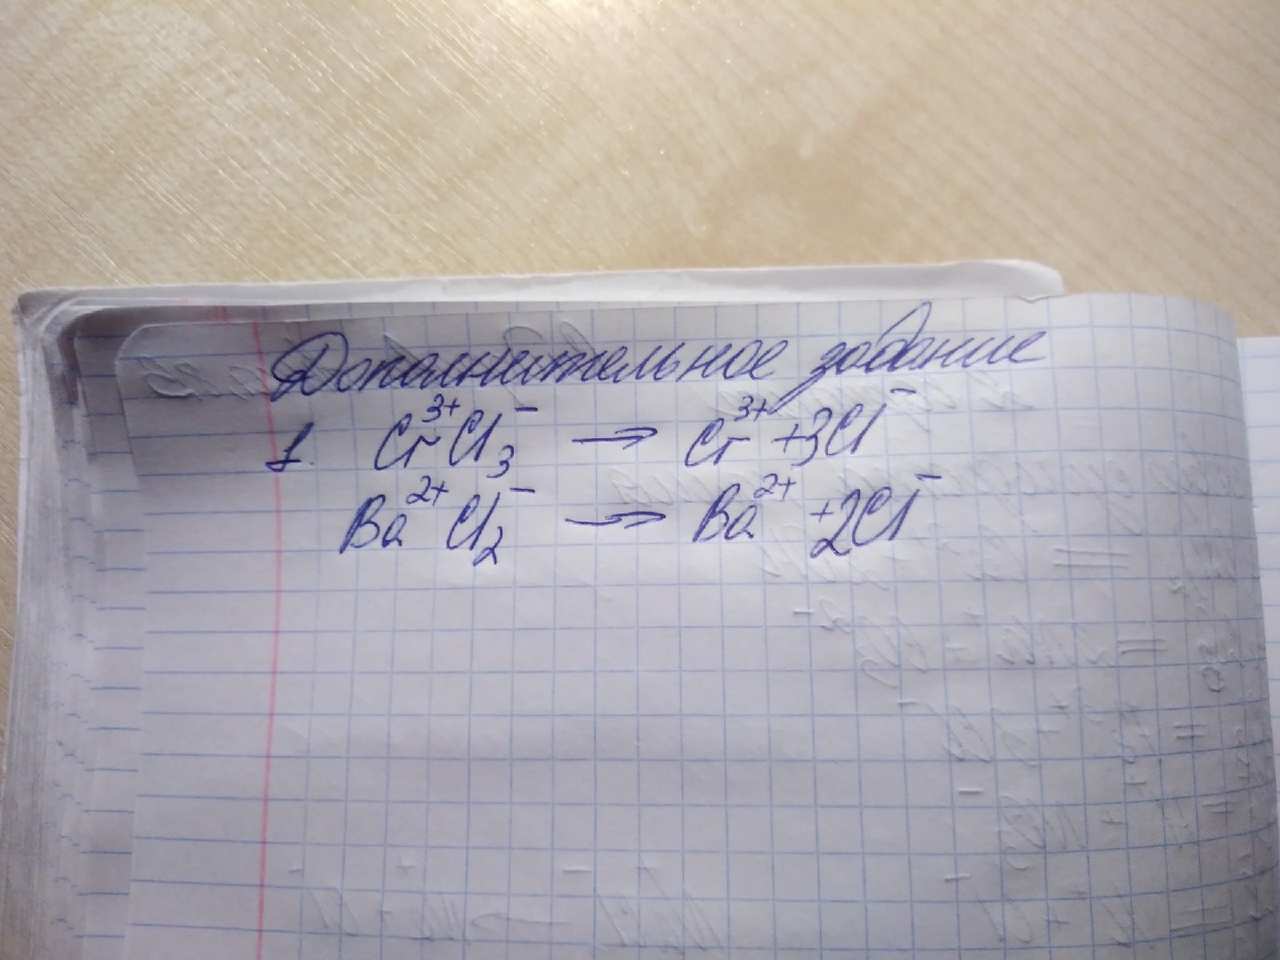 Дополнительное задание
1. Cr³⁺Cl₃⁻ → Cr³⁺ + 3Cl⁻
Ba²⁺Cl₂⁻ → Ba²⁺ + 2Cl⁻